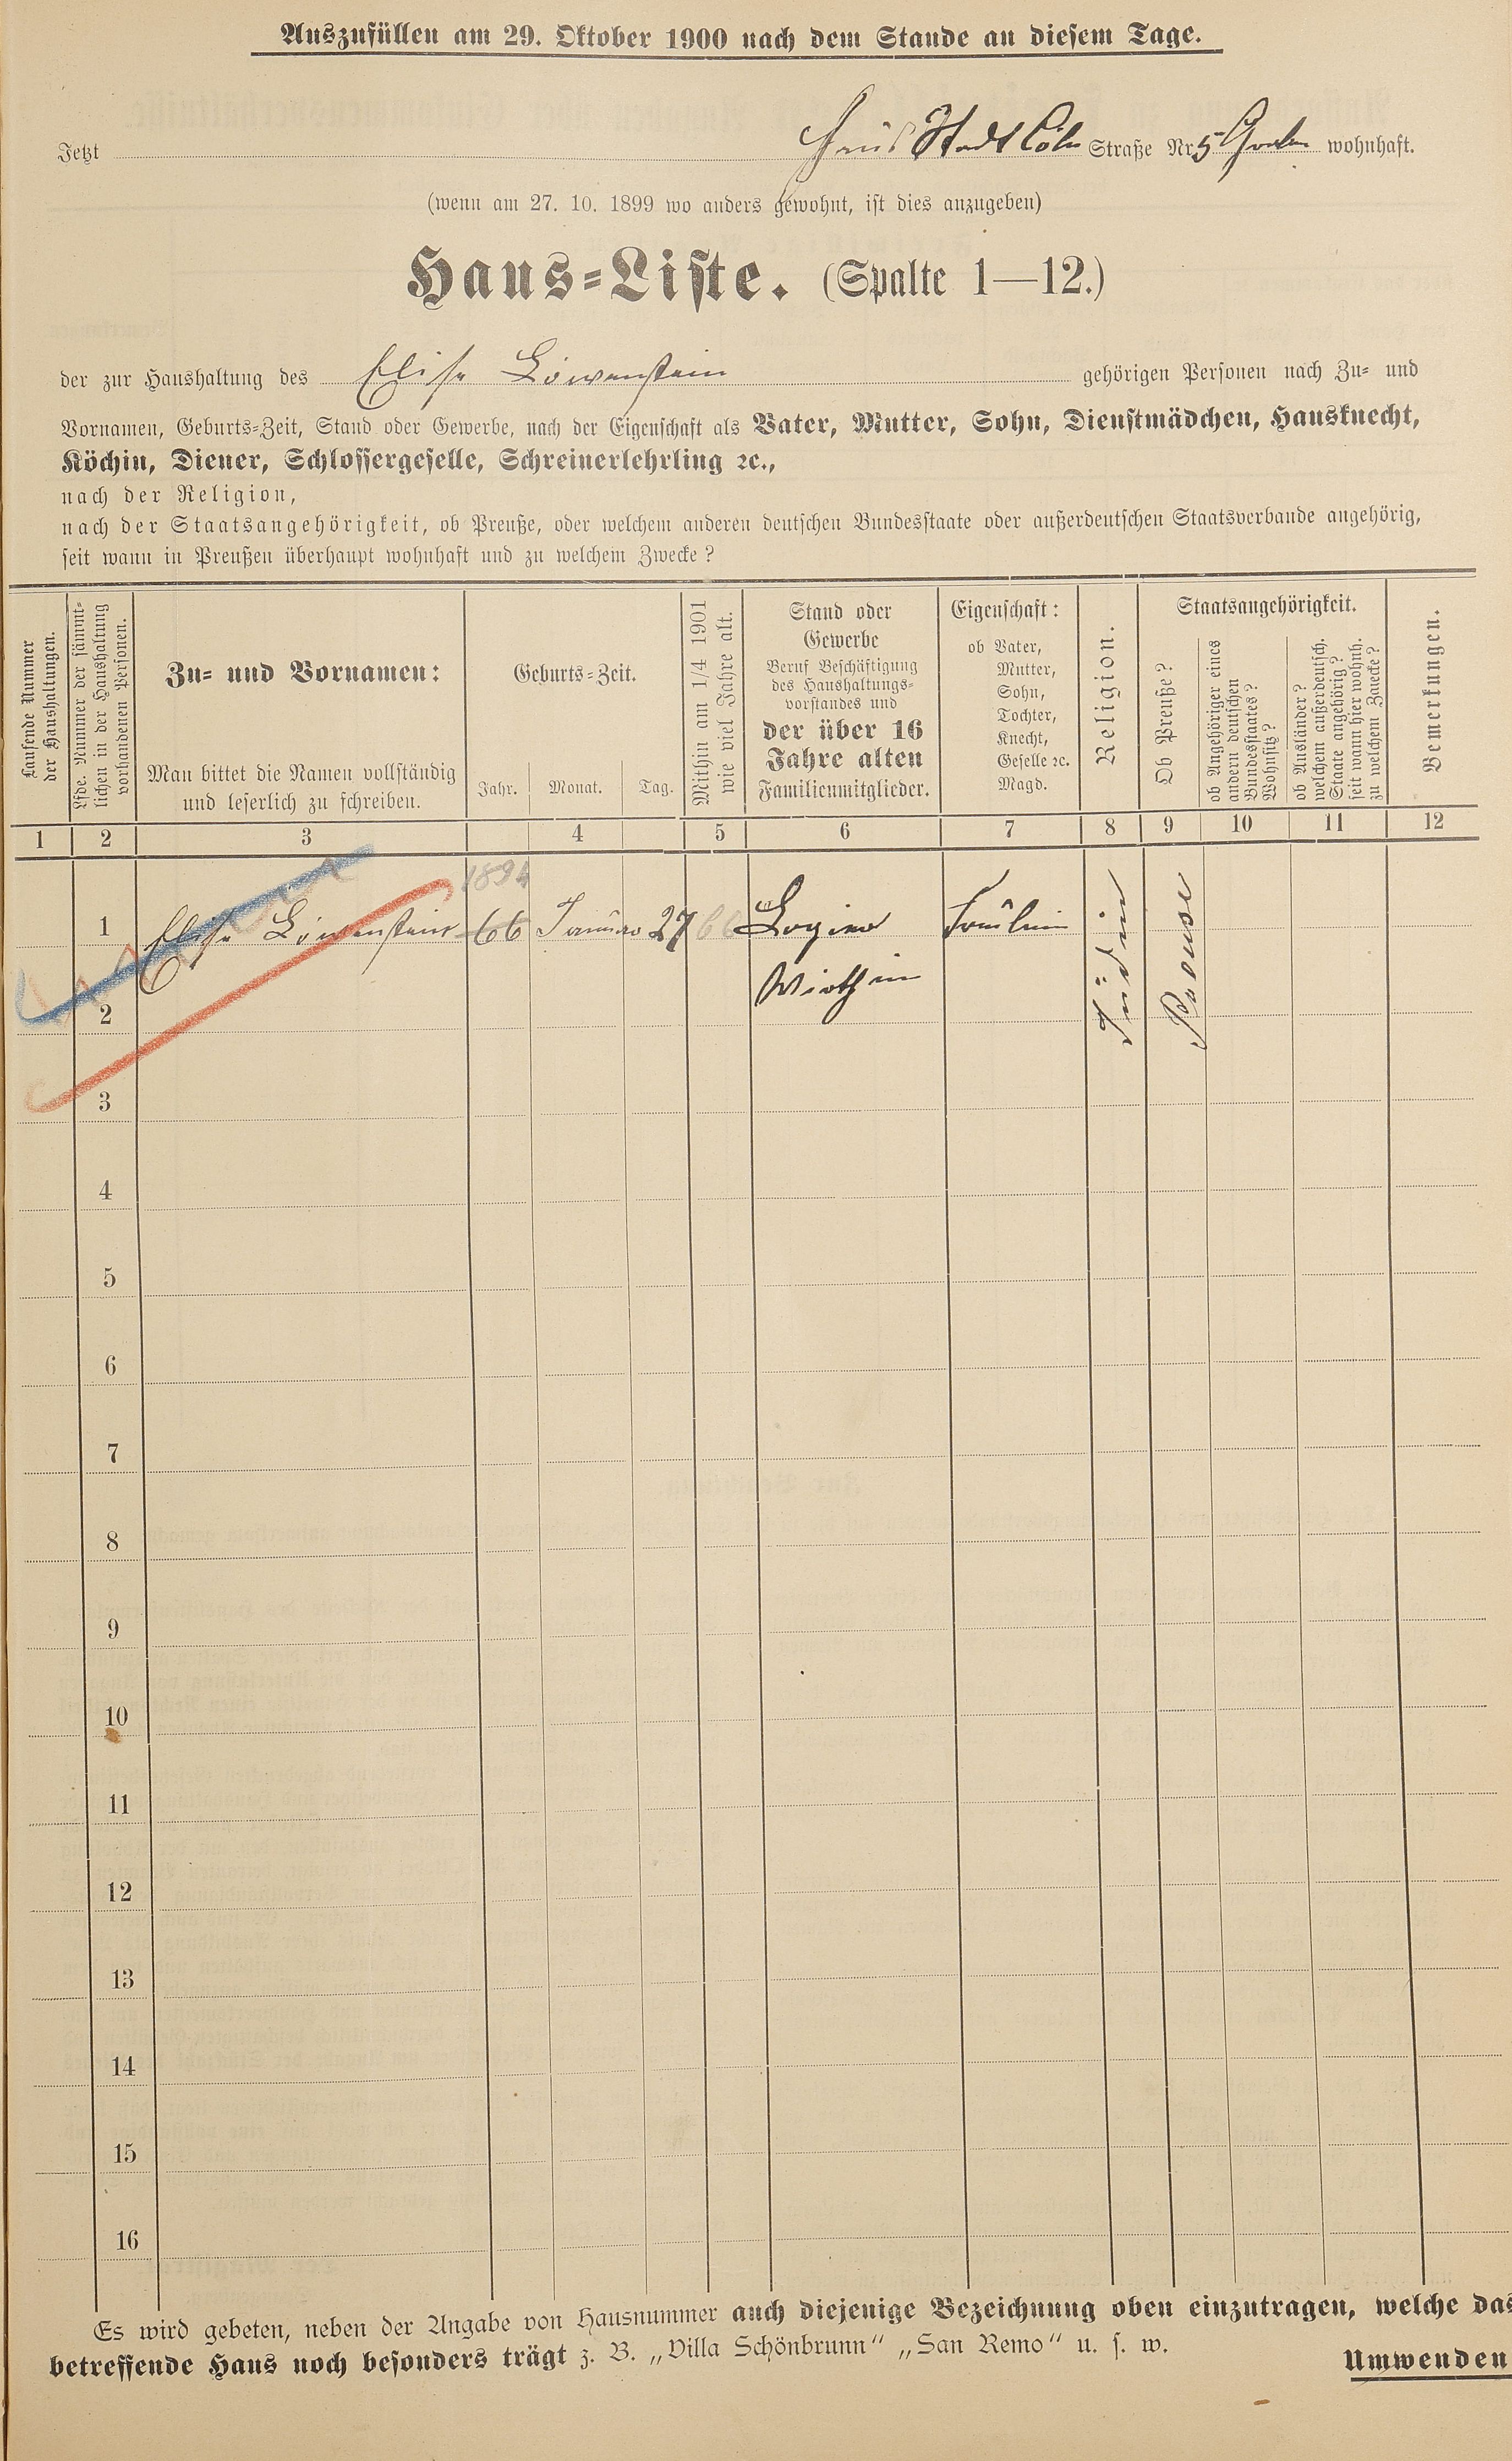 Auszufüllen am 29. Oktober 1900 nach dem Stande an diesem Tage.
Jetzt Haus Stadt Cöln Straße Nr. 5 Graben wohnhaft.
(wenn am 27. 10. 1899 wo anders gewohnt, ist dies anzugeben)
Haus-Liste. (Spalte 1—12.)
der zur Haushaltung des Elise Löwenstein gehörigen Personen nach Zu- und
Vornamen, Geburts-Zeit, Stand oder Gewerbe, nach der Eigenschaft als Vater, Mutter, Sohn, Dienstmädchen, Hausknecht,
Köchin, Diener, Schlossergeselle, Schreinerlehrling ꝛc.,
nach der Religion,
nach der Staatsangehörigkeit, ob Preuße, oder welchem anderen deutschen Bundesstaate oder außerdeutschen Staatsverbande angehörig,
seit wann in Preußen überhaupt wohnhaft und zu welchem Zwecke?
Laufende Nummer
der Haushaltungen.
Lfde. Nummer der sämmt-
lichen in der Haushaltung
vorhandenen Personen.
Zu- und Vornamen:
Man bittet die Namen vollständig
und leserlich zu schreiben.
Geburts-Zeit.
Jahr. Monat. Tag.
Mithin am 1/4 1901
wie viel Jahre alt.
Stand oder
Gewerbe
Beruf Beschäftigung
des Haushaltungs-
vorstandes und
der über 16
Jahre alten
Familienmitglieder.
Eigenschaft:
ob Vater,
Mutter,
Sohn,
Tochter,
Knecht,
Geselle ꝛc.
Magd.
Religion.
Staatsangehörigkeit.
Ob Preuße?
ob Angehöriger eines
andern deutschen
Bundesstaates?
Wohnsitz?
ob Ausländer?
welchem außerdeutsch.
Staate angehörig?
seit wann hier wohnh.
zu welchem Zwecke?
Bemerkungen.
1 2 3 4 5 6 7 8 9 10 11 12
1834
1 Elise Löwenstein 66 Januar 27 66 Logier Fräulein Jüdin Preuse
Wirthin
2
3
4
5
6
7
8
9
10
11
12
13
14
15
16
Es wird gebeten, neben der Angabe von Hausnummer auch diejenige Bezeichnung oben einzutragen, welche das
betreffende Haus noch besonders trägt z. B. „Villa Schönbrunn“ „San Remo“ u. s. w.
Umwenden